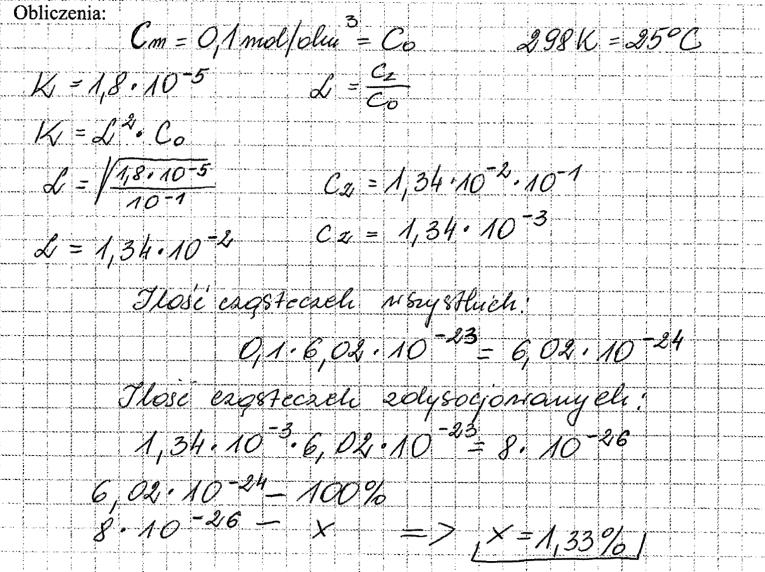 Obliczenia:
Cm = 0,1 mol/dm³ = C₀ 298K = 25°C
K = 1,8·10⁻⁵ α = C_z/C₀
K = α²·C₀
α = √(1,8·10⁻⁵/10⁻¹) C_z = 1,34·10⁻²·10⁻¹
α = 1,34·10⁻² C_z = 1,34·10⁻³
Ilość cząsteczek wszystkich:
0,1·6,02·10⁻²³ = 6,02·10⁻²⁴
Ilość cząsteczek zdysocjowanych:
1,34·10⁻³·6,02·10⁻²³ = 8·10⁻²⁶
6,02·10⁻²⁴ – 100%
8·10⁻²⁶ – x => x = 1,33%